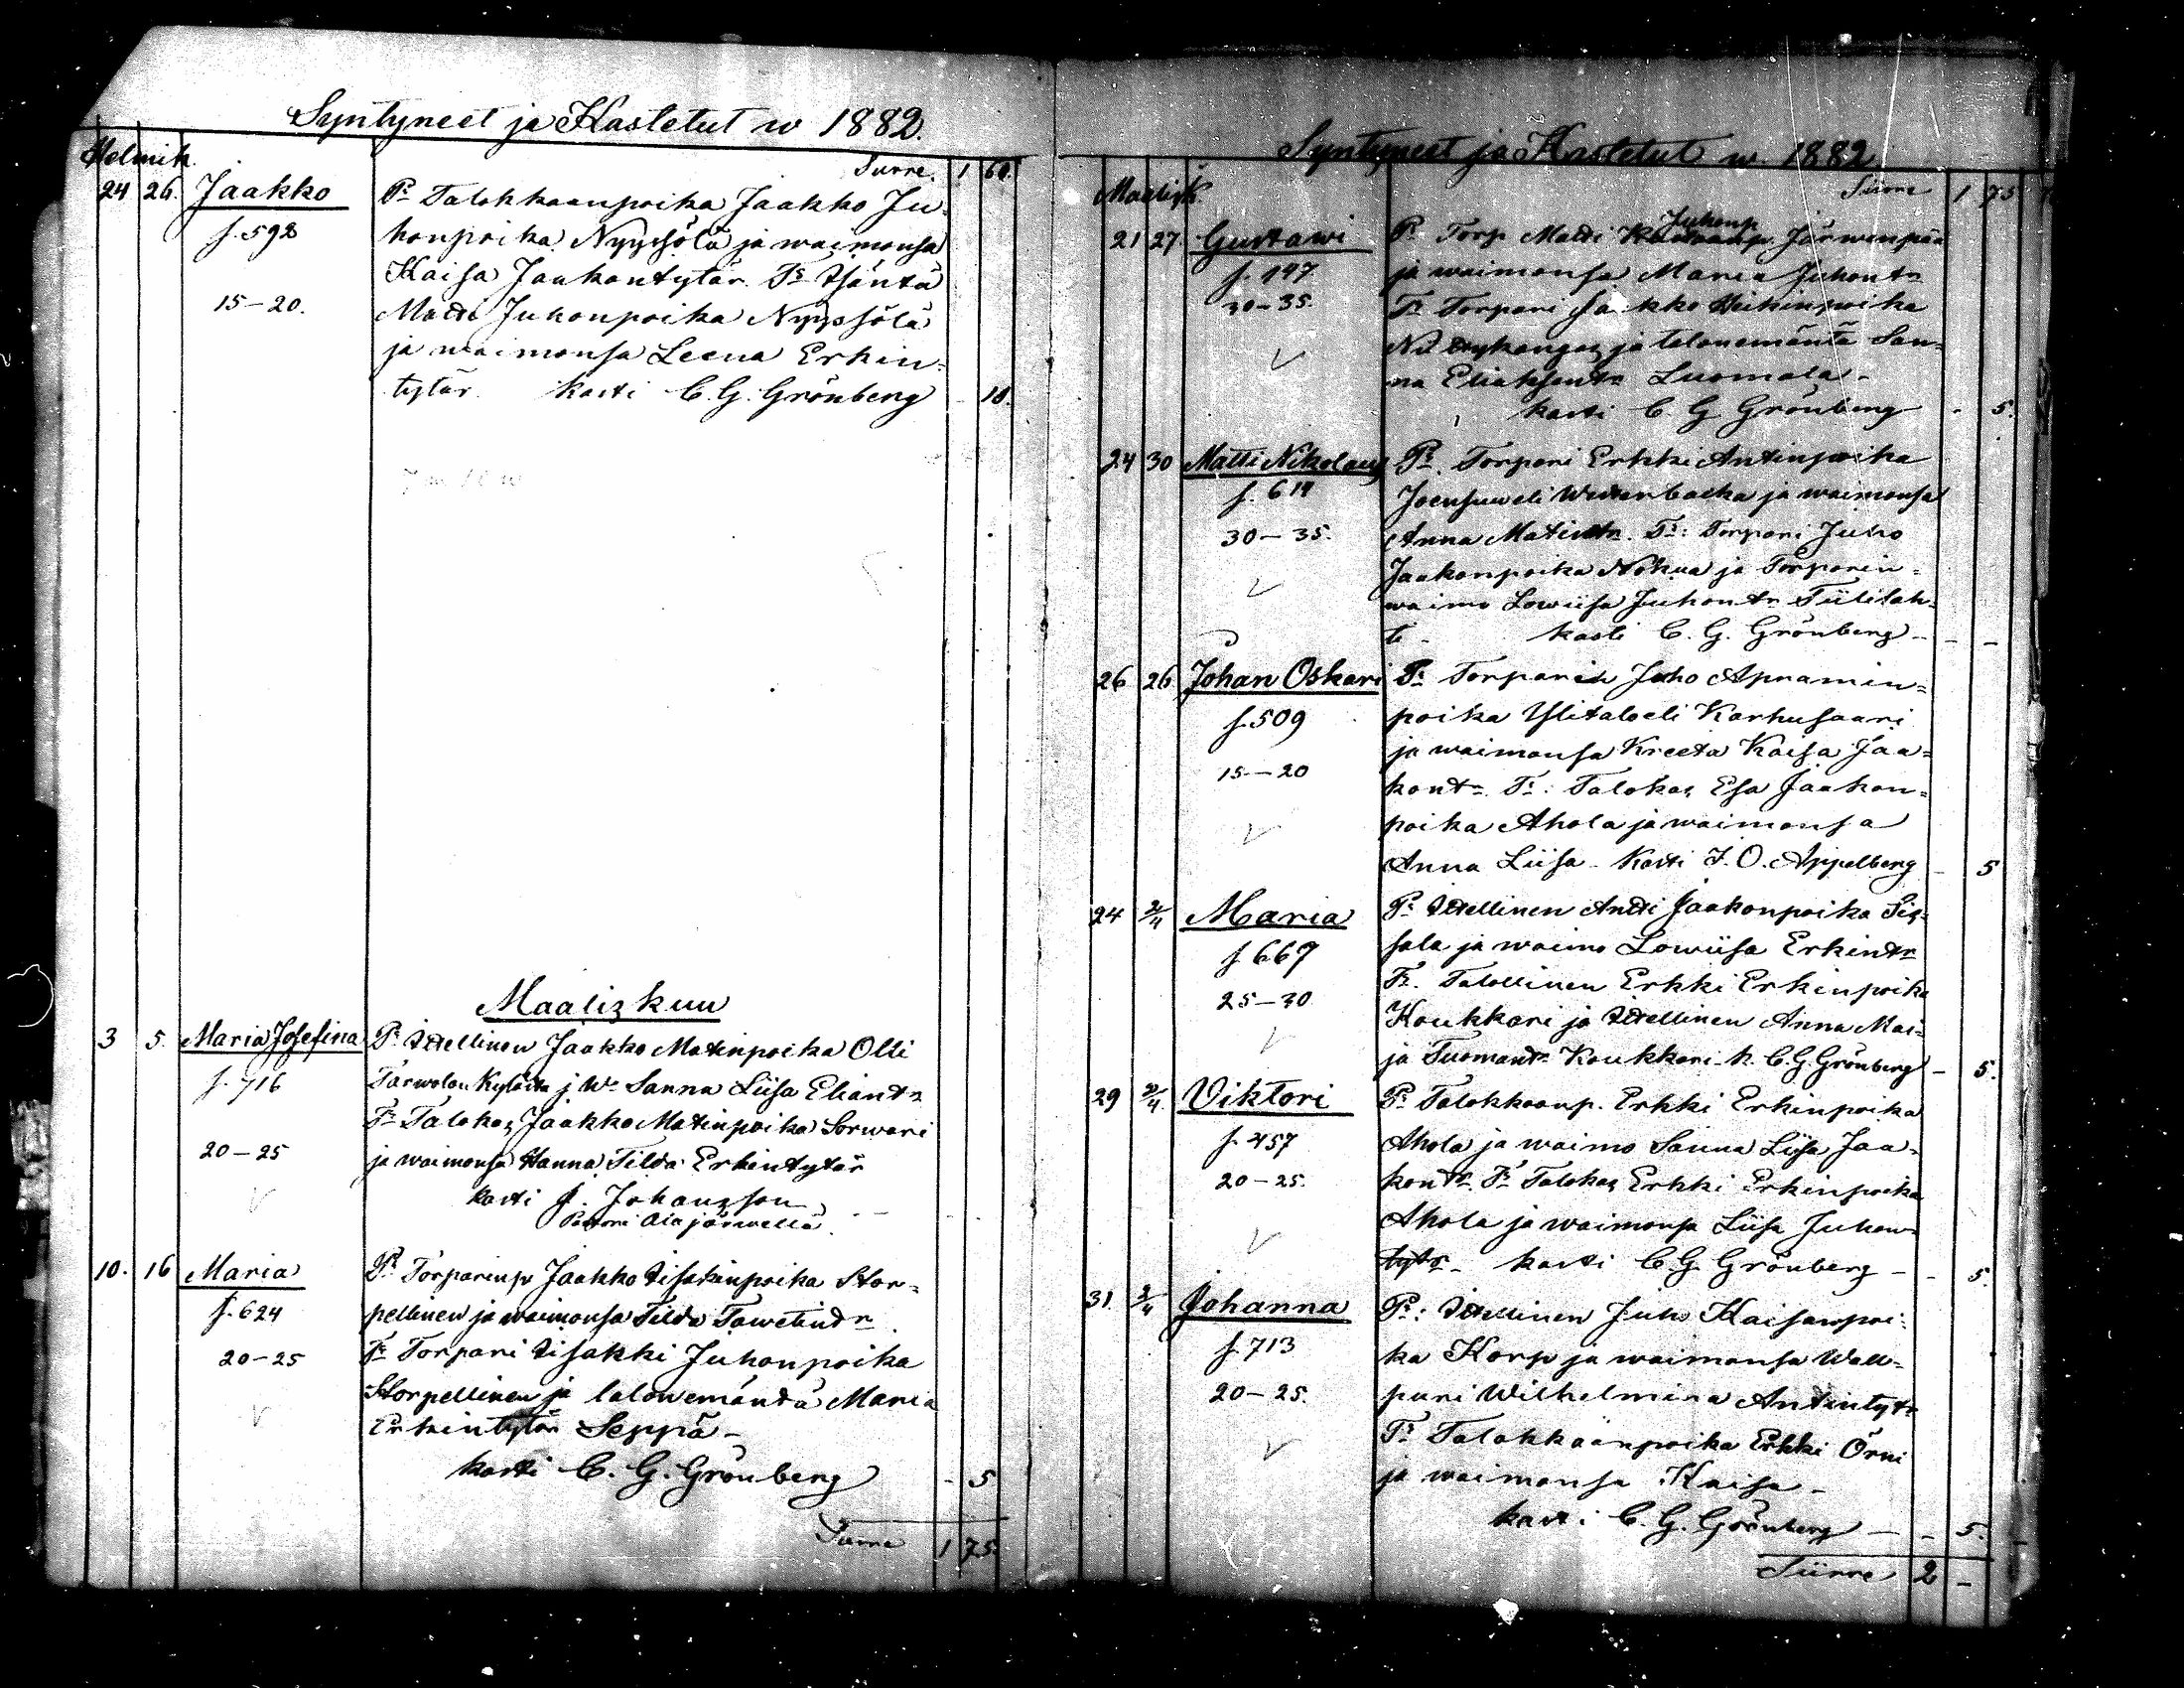 Syntyneet ja Kastetut w 1882.
Helmik. Siirre. 1 60.
24 26. Jaakko Pr Talokkaanpoika Jaakko Ju-
f. 592 honpoika Nyyssölä ja waimonsa
Kaisa Jaakontytär. Tr Isäntä
15–20. Matti Juhonpoika Nyyssölä
ja waimonsa Leena Erkin-
tytär. kasti C. G. Grönberg - 10.
Maaliskuu
3 5. Maria Josefina Pr Itellinen Jaakko Matinpoika Olli
f. 716 Tarwolan Kylästä j Wo Sanna Liisa Eliantr
Tr Talokas Jaakko Matinpoika Sorwari
20–25 ja waimonsa Hanna Tilda Erkintytär
kasti J. Johansson
Pastori Alajärwellä.
10. 16 Maria Pr Torparinp Jaakko Iisakinpoika Stor-
f. 624 pellinen ja waimonsa Tilda Tawetindr
20–25 Tr Torpari Iisakki Juhonpoika
Storpellinen ja talonemäntä Maria
Erkintytär Seppä –
kasti C. G. Grönberg - 5
Siirre 1 75.
Syntyneet ja Kastetut w. 1882.
Maalisk. Siirre 1 75
Juhonp
21 27. Gustawi Pr Torp Matti Järwenpää
f. 147 ja waimonsa Maria Juhontr
30–35. Tr Torpari Jaakko Heikinpoika
Niittykangas ja talonemäntä San-
na Eliaksentr Luomala –
kasti C. G. Grönberg - 5.
24 30 Matti Nikolaus Pr. Torpari Erkki Antinpoika
f. 614 Joensuu eli Westerbacka ja waimonsa
30–35. Anna Matintr. Tr: Torpari Juho
Jaakonpoika Nokua ja Torparin-
waimo Lowiisa Juhontr Tiilitah-
ti – kasti C. G. Grönberg – – –
26 26 Johan Oskari Pr Torpari Juho Apramin-
f. 509 poika Ylitalo eli Karhusaari
ja waimonsa Kreeta Kaisa Jaa-
15–20 kontr. Tr: Talokas Esa Jaakon-
poika Ahola ja waimonsa
Anna Liisa – Kasti J. O. Appelberg – 5
24 2/4 Maria Pr Itellinen Antti Jaakonpoika Sis-
f. 667 sala ja waimo Lowiisa Erkintr
25–30 Tr. Talollinen Erkki Erkinpoika
Koukkari ja Itellinen Anna Mai-
ja Tuomantr Koukkari – k. C. G. Grönberg – 5.
29 2/4 Viktori Pr Talokkaanp. Erkki Erkinpoika
f. 457 Ahola ja waimo Sanna Liisa Jaa-
20–25. kontr. Tr Talokas Erkki Erkinpoika
Ahola ja waimonsa Liisa Juhon-
tytr – kasti C. G. Grönberg – - 5.
31. 2/4 Johanna Pr: Itellinen Juho Kaisanpoi-
f. 713 ka Korp ja waimonsa Wall-
20–25. puri Wilhelmina Antintytr
Tr Talokkaanpoika Erkki Örni
ja waimonsa Kaisa –
kasti C. G. Grönberg – - 5.
Siirre 2 –